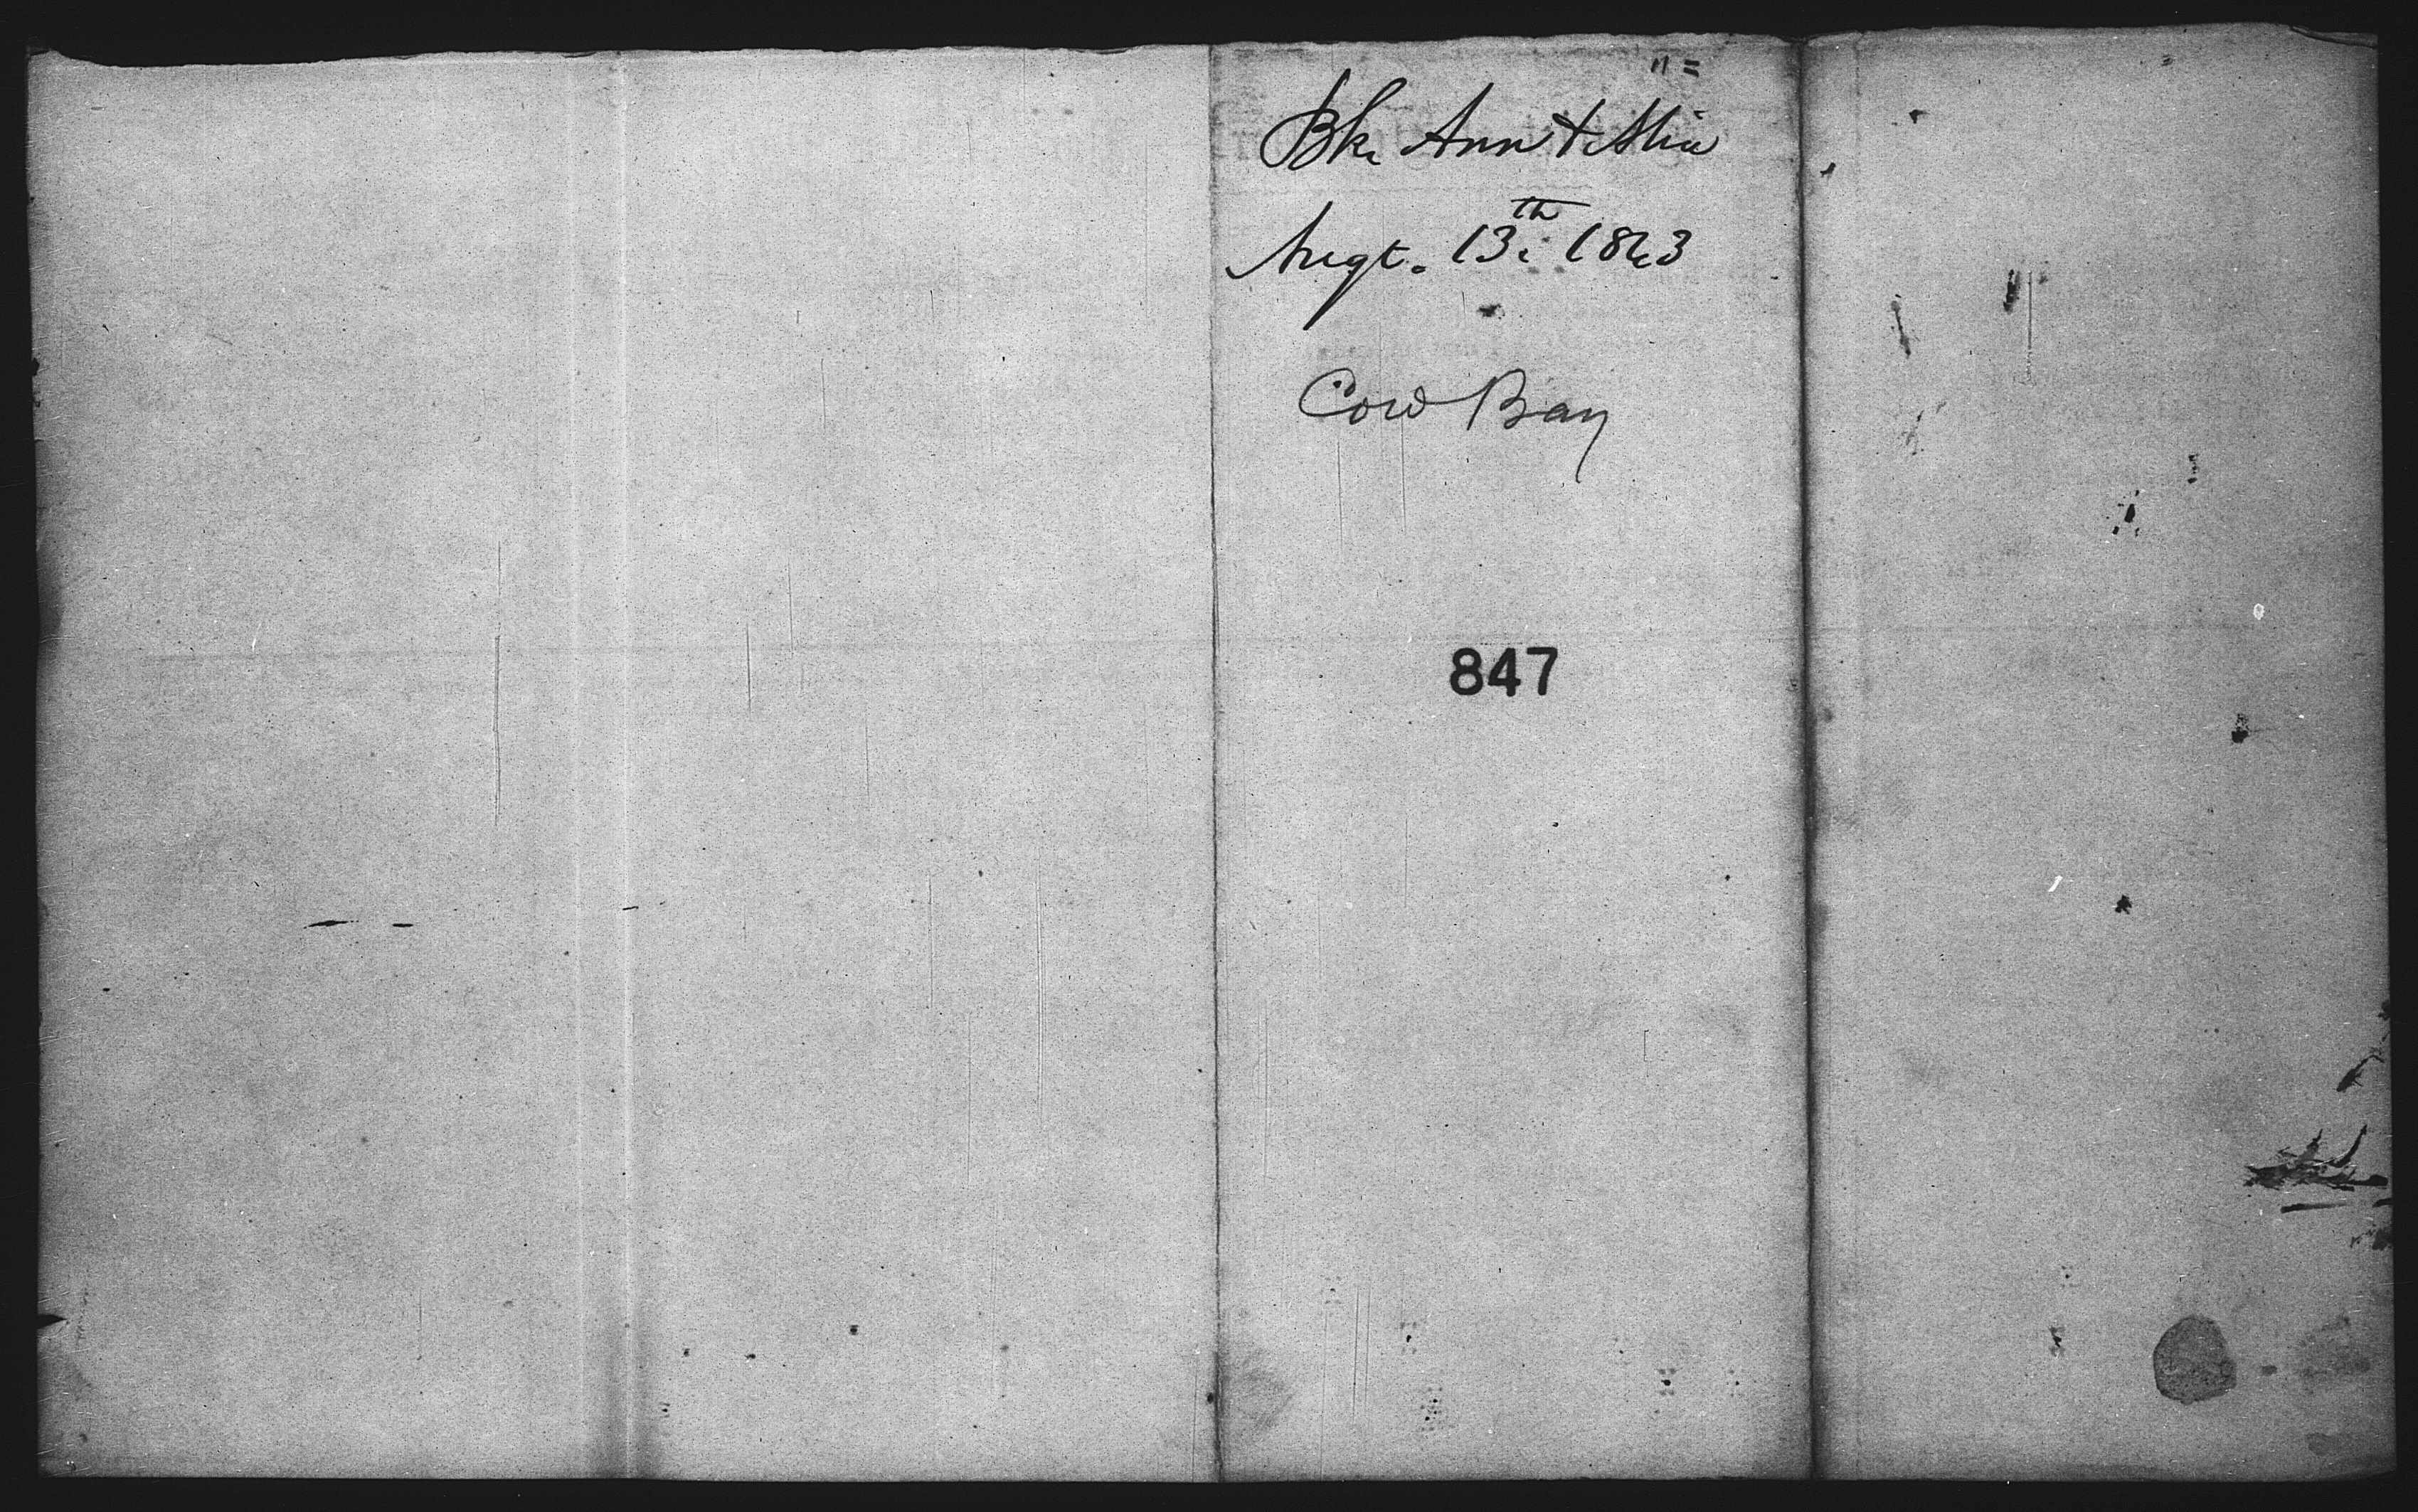 Bk. Ann & Mia
Augt. 13th 1863
Cow Bay
847